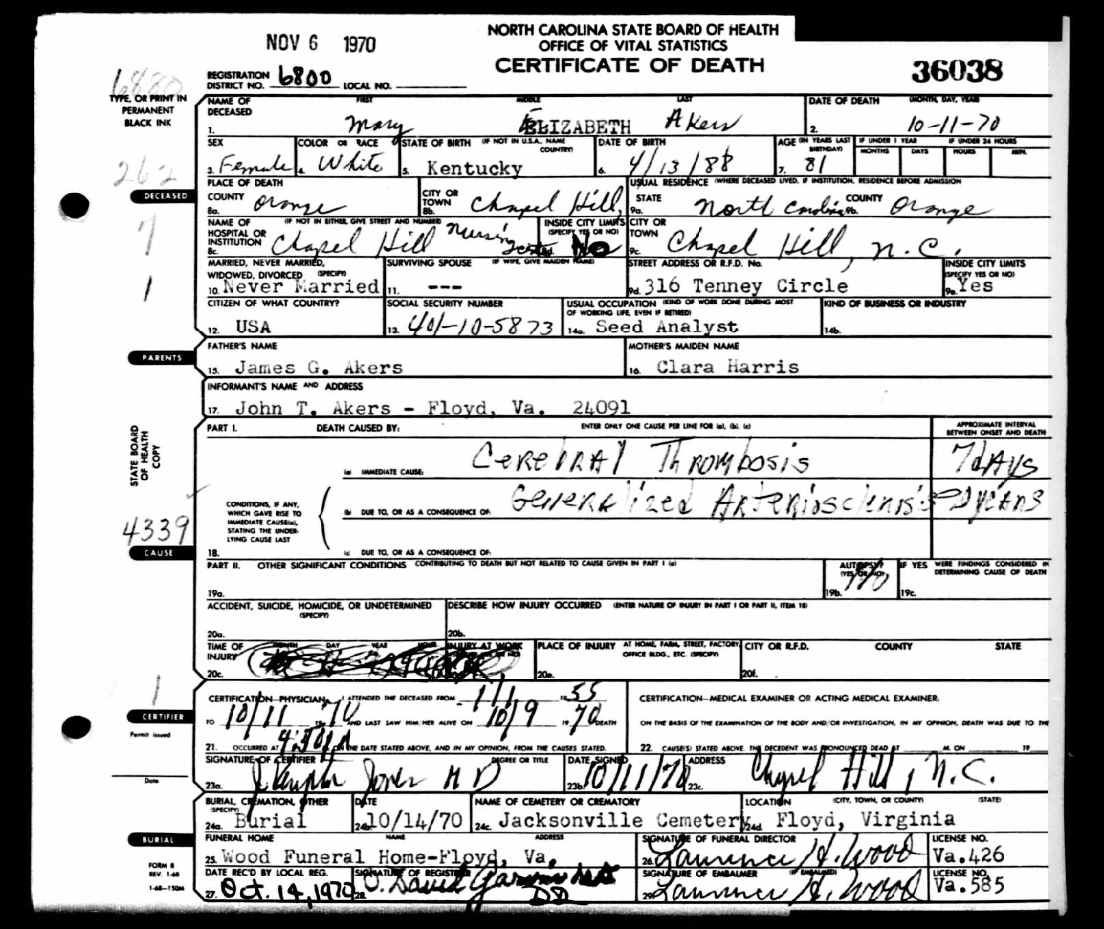 NOV 6 1970
NORTH CAROLINA STATE BOARD OF HEALTH
OFFICE OF VITAL STATISTICS
CERTIFICATE OF DEATH
36038
6880
REGISTRATION DISTRICT NO. 6800 LOCAL NO.
TYPE, OR PRINT IN PERMANENT BLACK INK
NAME OF DECEASED FIRST MIDDLE LAST DATE OF DEATH (MONTH, DAY, YEAR)
1. Mary ELIZABETH Akers 2. 10-11-70
SEX COLOR OR RACE STATE OF BIRTH (IF NOT IN U.S.A., NAME COUNTRY) DATE OF BIRTH AGE (IN YEARS LAST BIRTHDAY) IF UNDER 1 YEAR IF UNDER 24 HOURS
MONTHS DAYS HOURS MIN.
3. Female 4. White 5. Kentucky 6. 4/13/88 7. 81
262
DECEASED
7
1
PLACE OF DEATH USUAL RESIDENCE (WHERE DECEASED LIVED, IF INSTITUTION, RESIDENCE BEFORE ADMISSION
COUNTY CITY OR TOWN STATE COUNTY
8a. Orange 8b. Chapel Hill, 9a. North Carolina 9b. Orange
NAME OF HOSPITAL OR INSTITUTION (IF NOT IN EITHER, GIVE STREET AND NUMBER) INSIDE CITY LIMITS (SPECIFY YES OR NO) CITY OR TOWN
8c. Chapel Hill Nursing No 9c. Chapel Hill, N.C.
MARRIED, NEVER MARRIED, WIDOWED, DIVORCED (SPECIFY) SURVIVING SPOUSE (IF WIFE, GIVE MAIDEN NAME) STREET ADDRESS OR R.F.D. No. INSIDE CITY LIMITS (SPECIFY YES OR NO)
10. Never Married 11. --- 9d. 316 Tenney Circle 9e. Yes
CITIZEN OF WHAT COUNTRY? SOCIAL SECURITY NUMBER USUAL OCCUPATION (KIND OF WORK DONE DURING MOST OF WORKING LIFE, EVEN IF RETIRED) KIND OF BUSINESS OR INDUSTRY
12. USA 13. 401-10-5873 14a. Seed Analyst 14b.
PARENTS
FATHER'S NAME MOTHER'S MAIDEN NAME
15. James G. Akers 16. Clara Harris
INFORMANT'S NAME AND ADDRESS
17. John T. Akers - Floyd, Va. 24091
STATE BOARD OF HEALTH COPY
PART I. DEATH CAUSED BY: ENTER ONLY ONE CAUSE PER LINE FOR (a), (b), (c) APPROXIMATE INTERVAL BETWEEN ONSET AND DEATH
(a) IMMEDIATE CAUSE: Cerebral Thrombosis 7 days
CONDITIONS, IF ANY, WHICH GAVE RISE TO IMMEDIATE CAUSE(a), STATING THE UNDERLYING CAUSE LAST
(b) DUE TO, OR AS A CONSEQUENCE OF: Generalized Arteriosclerosis years
4339
CAUSE
18. (c) DUE TO, OR AS A CONSEQUENCE OF:
PART II. OTHER SIGNIFICANT CONDITIONS CONTRIBUTING TO DEATH BUT NOT RELATED TO CAUSE GIVEN IN PART I (a) AUTOPSY? (YES OR NO) IF YES WERE FINDINGS CONSIDERED IN DETERMINING CAUSE OF DEATH
19a. 19b. No 19c.
ACCIDENT, SUICIDE, HOMICIDE, OR UNDETERMINED (SPECIFY) DESCRIBE HOW INJURY OCCURRED (ENTER NATURE OF INJURY IN PART I OR PART II, ITEM 18)
20a. 20b.
TIME OF INJURY MONTH DAY YEAR HOUR INJURY AT WORK PLACE OF INJURY AT HOME, FARM, STREET, FACTORY, OFFICE BLDG., ETC. (SPECIFY) CITY OR R.F.D. COUNTY STATE
20c. 20e. 20f.
1
CERTIFIER
Permit issued
Date
CERTIFICATION-PHYSICIAN: I ATTENDED THE DECEASED FROM 1/1 1955
TO 10/11 1970 AND LAST SAW HIM/HER ALIVE ON 10/9 1970 DEATH
21. OCCURRED AT ON THE DATE STATED ABOVE, AND IN MY OPINION, FROM THE CAUSES STATED.
CERTIFICATION-MEDICAL EXAMINER OR ACTING MEDICAL EXAMINER:
ON THE BASIS OF THE EXAMINATION OF THE BODY AND/OR INVESTIGATION, IN MY OPINION, DEATH WAS DUE TO THE
22. CAUSE(S) STATED ABOVE. THE DECEDENT WAS PRONOUNCED DEAD AT M. ON 19
SIGNATURE OF CERTIFIER DEGREE OR TITLE DATE SIGNED ADDRESS
23a. Jones M D 23b. 10/11/70 23c. Chapel Hill, N.C.
BURIAL, CREMATION, OTHER (SPECIFY) DATE NAME OF CEMETERY OR CREMATORY LOCATION (CITY, TOWN, OR COUNTY) (STATE)
24a. Burial 24b. 10/14/70 24c. Jacksonville Cemetery 24d. Floyd, Virginia
BURIAL
FUNERAL HOME NAME ADDRESS SIGNATURE OF FUNERAL DIRECTOR LICENSE NO.
25. Wood Funeral Home-Floyd, Va. 26. Lawrence H. Wood Va.426
FORM 8
REV. 1-68
1-68-150M
DATE REC'D BY LOCAL REG. SIGNATURE OF REGISTRAR SIGNATURE OF EMBALMER (IF EMBALMED) LICENSE NO.
27. Oct. 14, 1970 28. O. David Garvin 29. Lawrence H. Wood Va.585